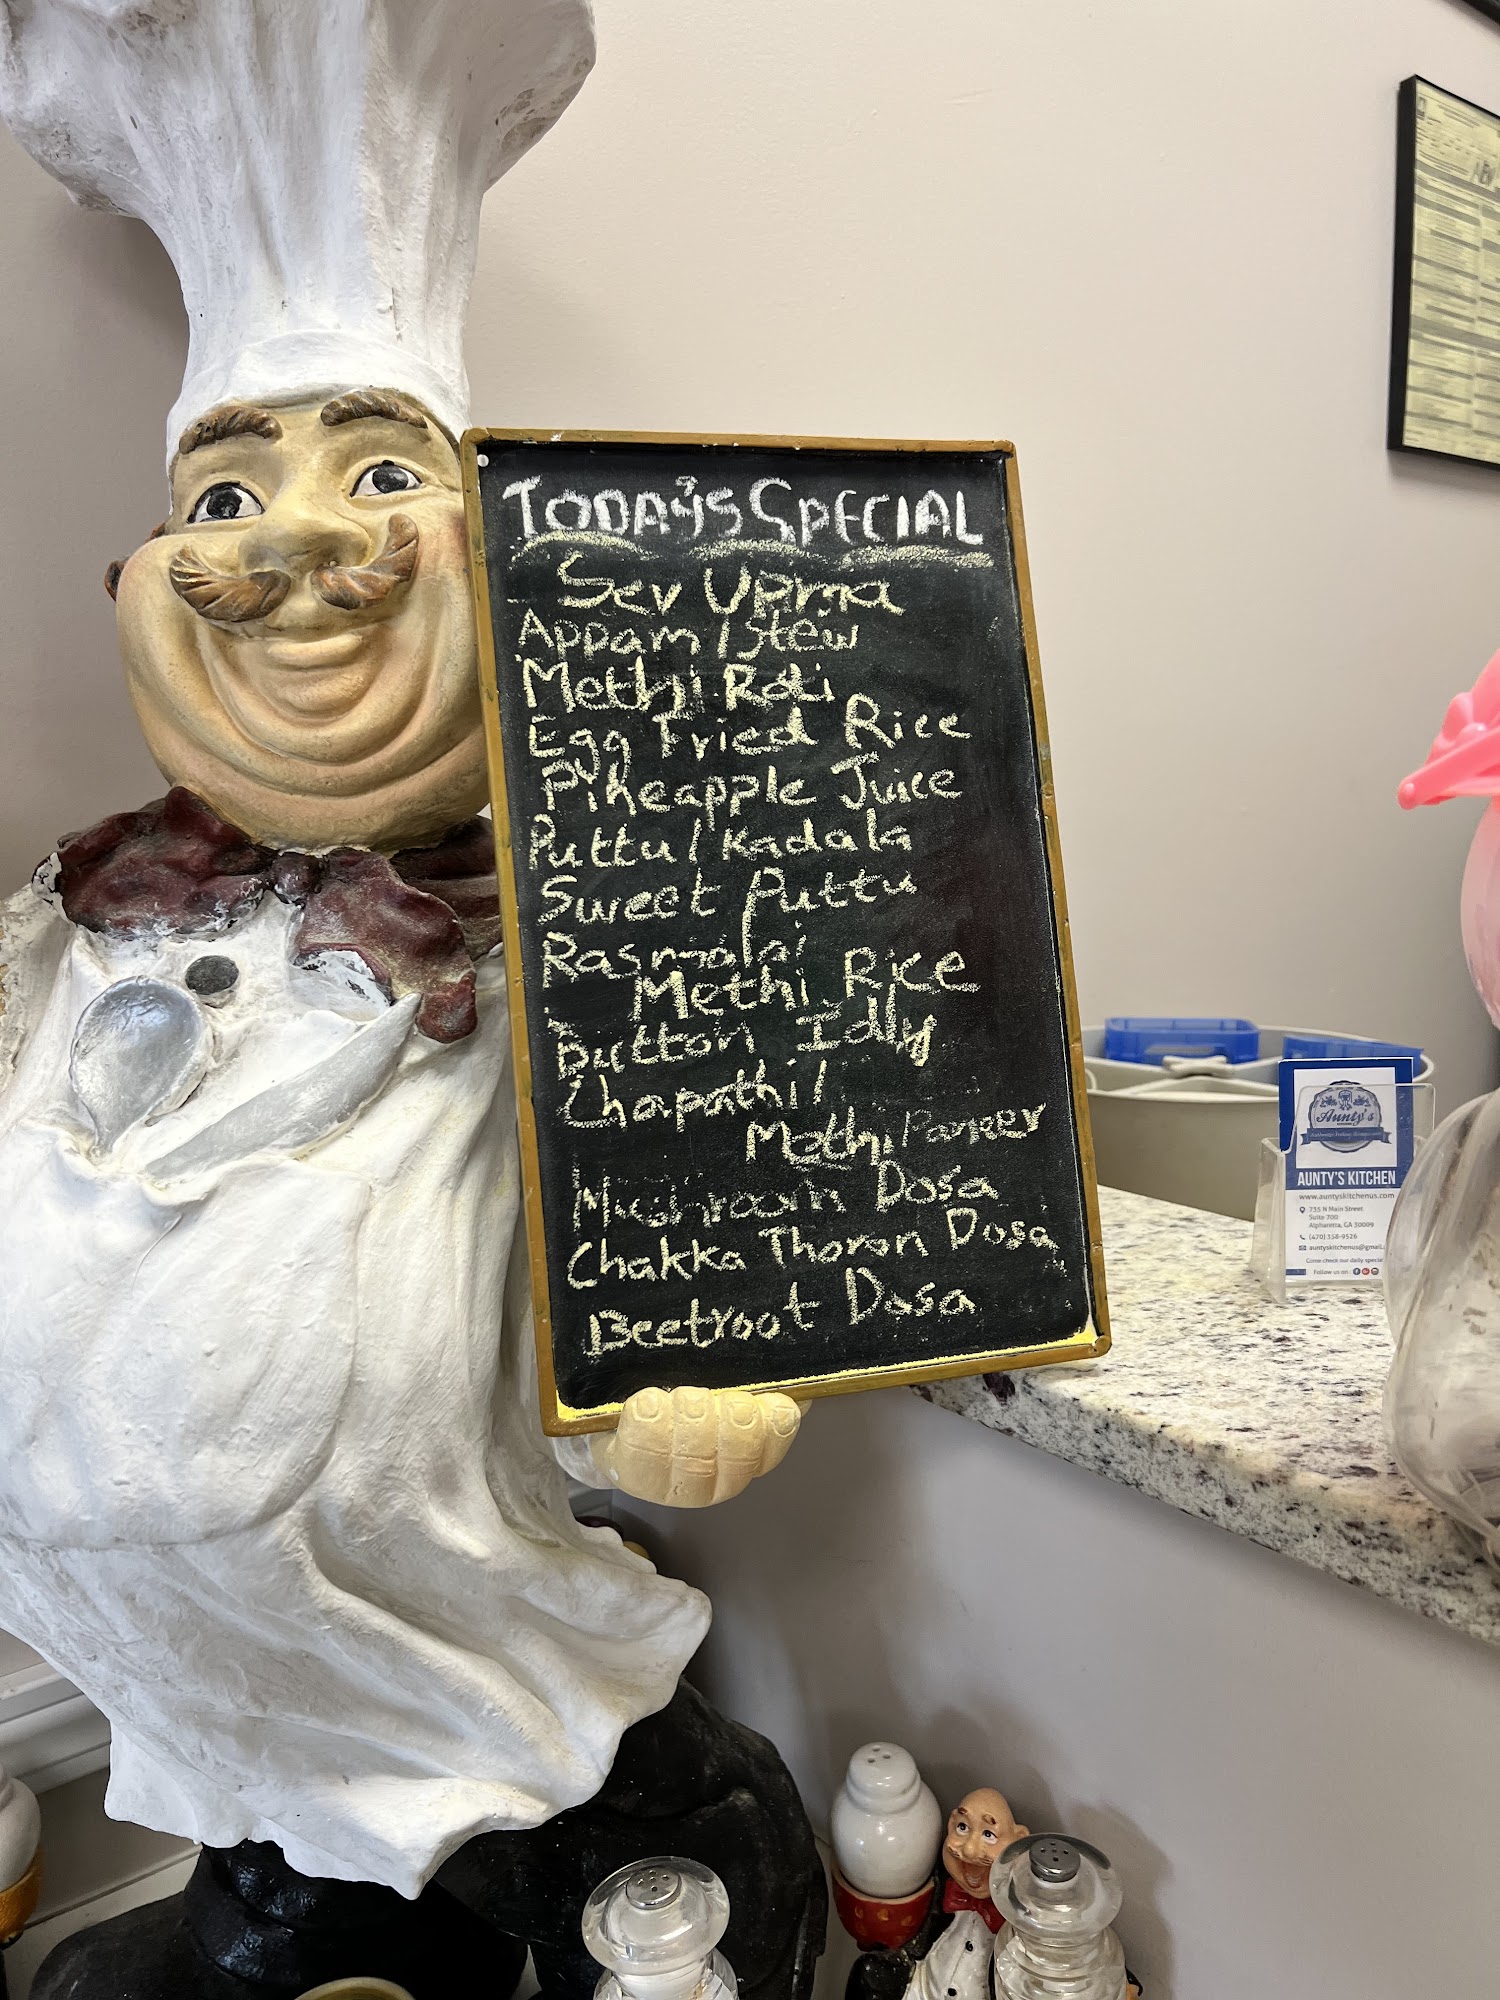 TODAY'S SPECIAL
Sev Upma
Appam / Stew
Methi Roti
Egg Fried Rice
Pineapple Juice
Puttu / Kadala
Sweet Puttu
Rasmalai
Methi Rice
Button Idly
Chapathi /
Methi Paneer
Mushroom Dosa
Chakka Thoran Dosa
Beetroot Dosa
Aunty's
AUNTY'S KITCHEN
www.auntyskitchenus.com
735 N Main Street
Suite 700
Alpharetta, GA 30009
(470) 358-9526
auntyskitchenus@gmail.
Come check our daily special
Follow us on :